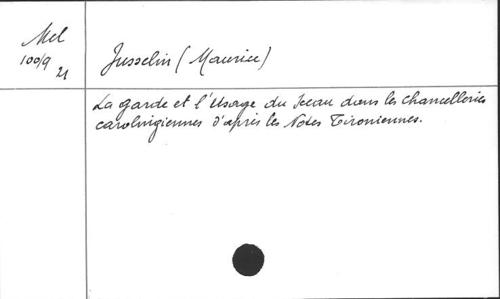 Mel
100/9
21
Jusselin (Maurice)
La garde et l'Usage du Sceau dans les Chancelleries
carolingiennes d'après les Notes Tironiennes.